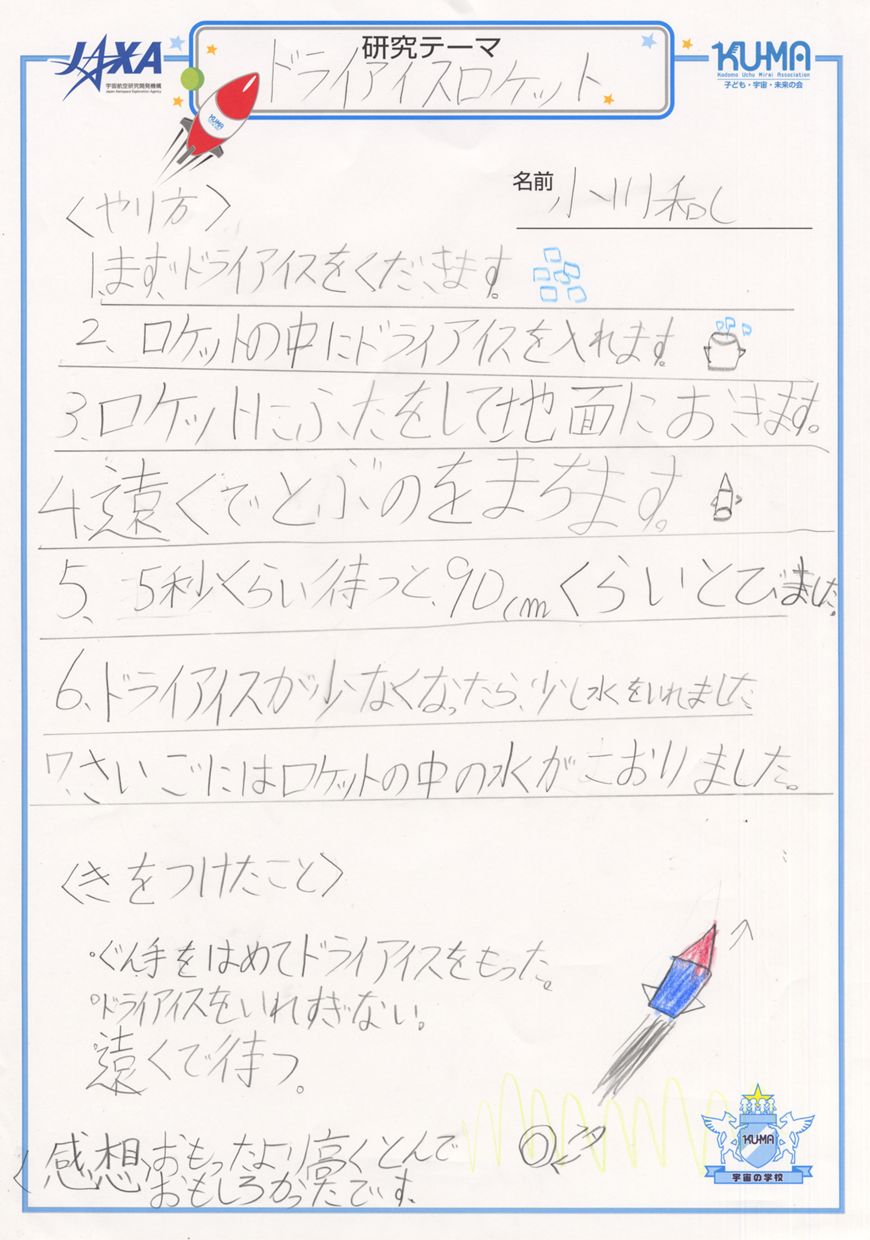 JAXA
宇宙航空研究開発機構
Japan Aerospace Exploration Agency
研究テーマ
ドライアイスロケット
KU-MA
Kodomo Uchu Mirai Association
子ども・宇宙・未来の会
KU-MA
名前 小川和し
〈やり方〉
1.まず、ドライアイスをくだきます。
2、ロケットの中にドライアイスを入れます。
3、ロケットにふたをして地面におきます。
4、遠くでとぶのをまちます。
5、5秒くらい待つと、90cmくらいとびました。
6、ドライアイスが少なくなったら、少し水をいれました
7、さいごにはロケットの中の水がこおりました。
〈きをつけたこと〉
・ぐん手をはめてドライアイスをもった。
・ドライアイスをいれすぎない。
・遠くで待つ。
〈感想〉おもったより高くとんで
おもしろかったです。
KU-MA
宇宙の学校